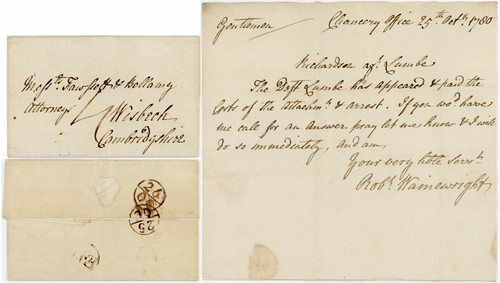 Mess.rs Tawsloft & Bellamy
Attorneys
Wisbech
Cambridgeshire
26
25
Gentlemen Chancery Office 25th. Octb. 1780
Richardson agt. Lumbe
The Deft Lumbe has appeared & paid the
Costs of the attachmt. & arrest. If you wod. have
me call for an answer. pray let me know & I will
do so immediately, and am,
Your very
Servt.
Robt. Wainewright